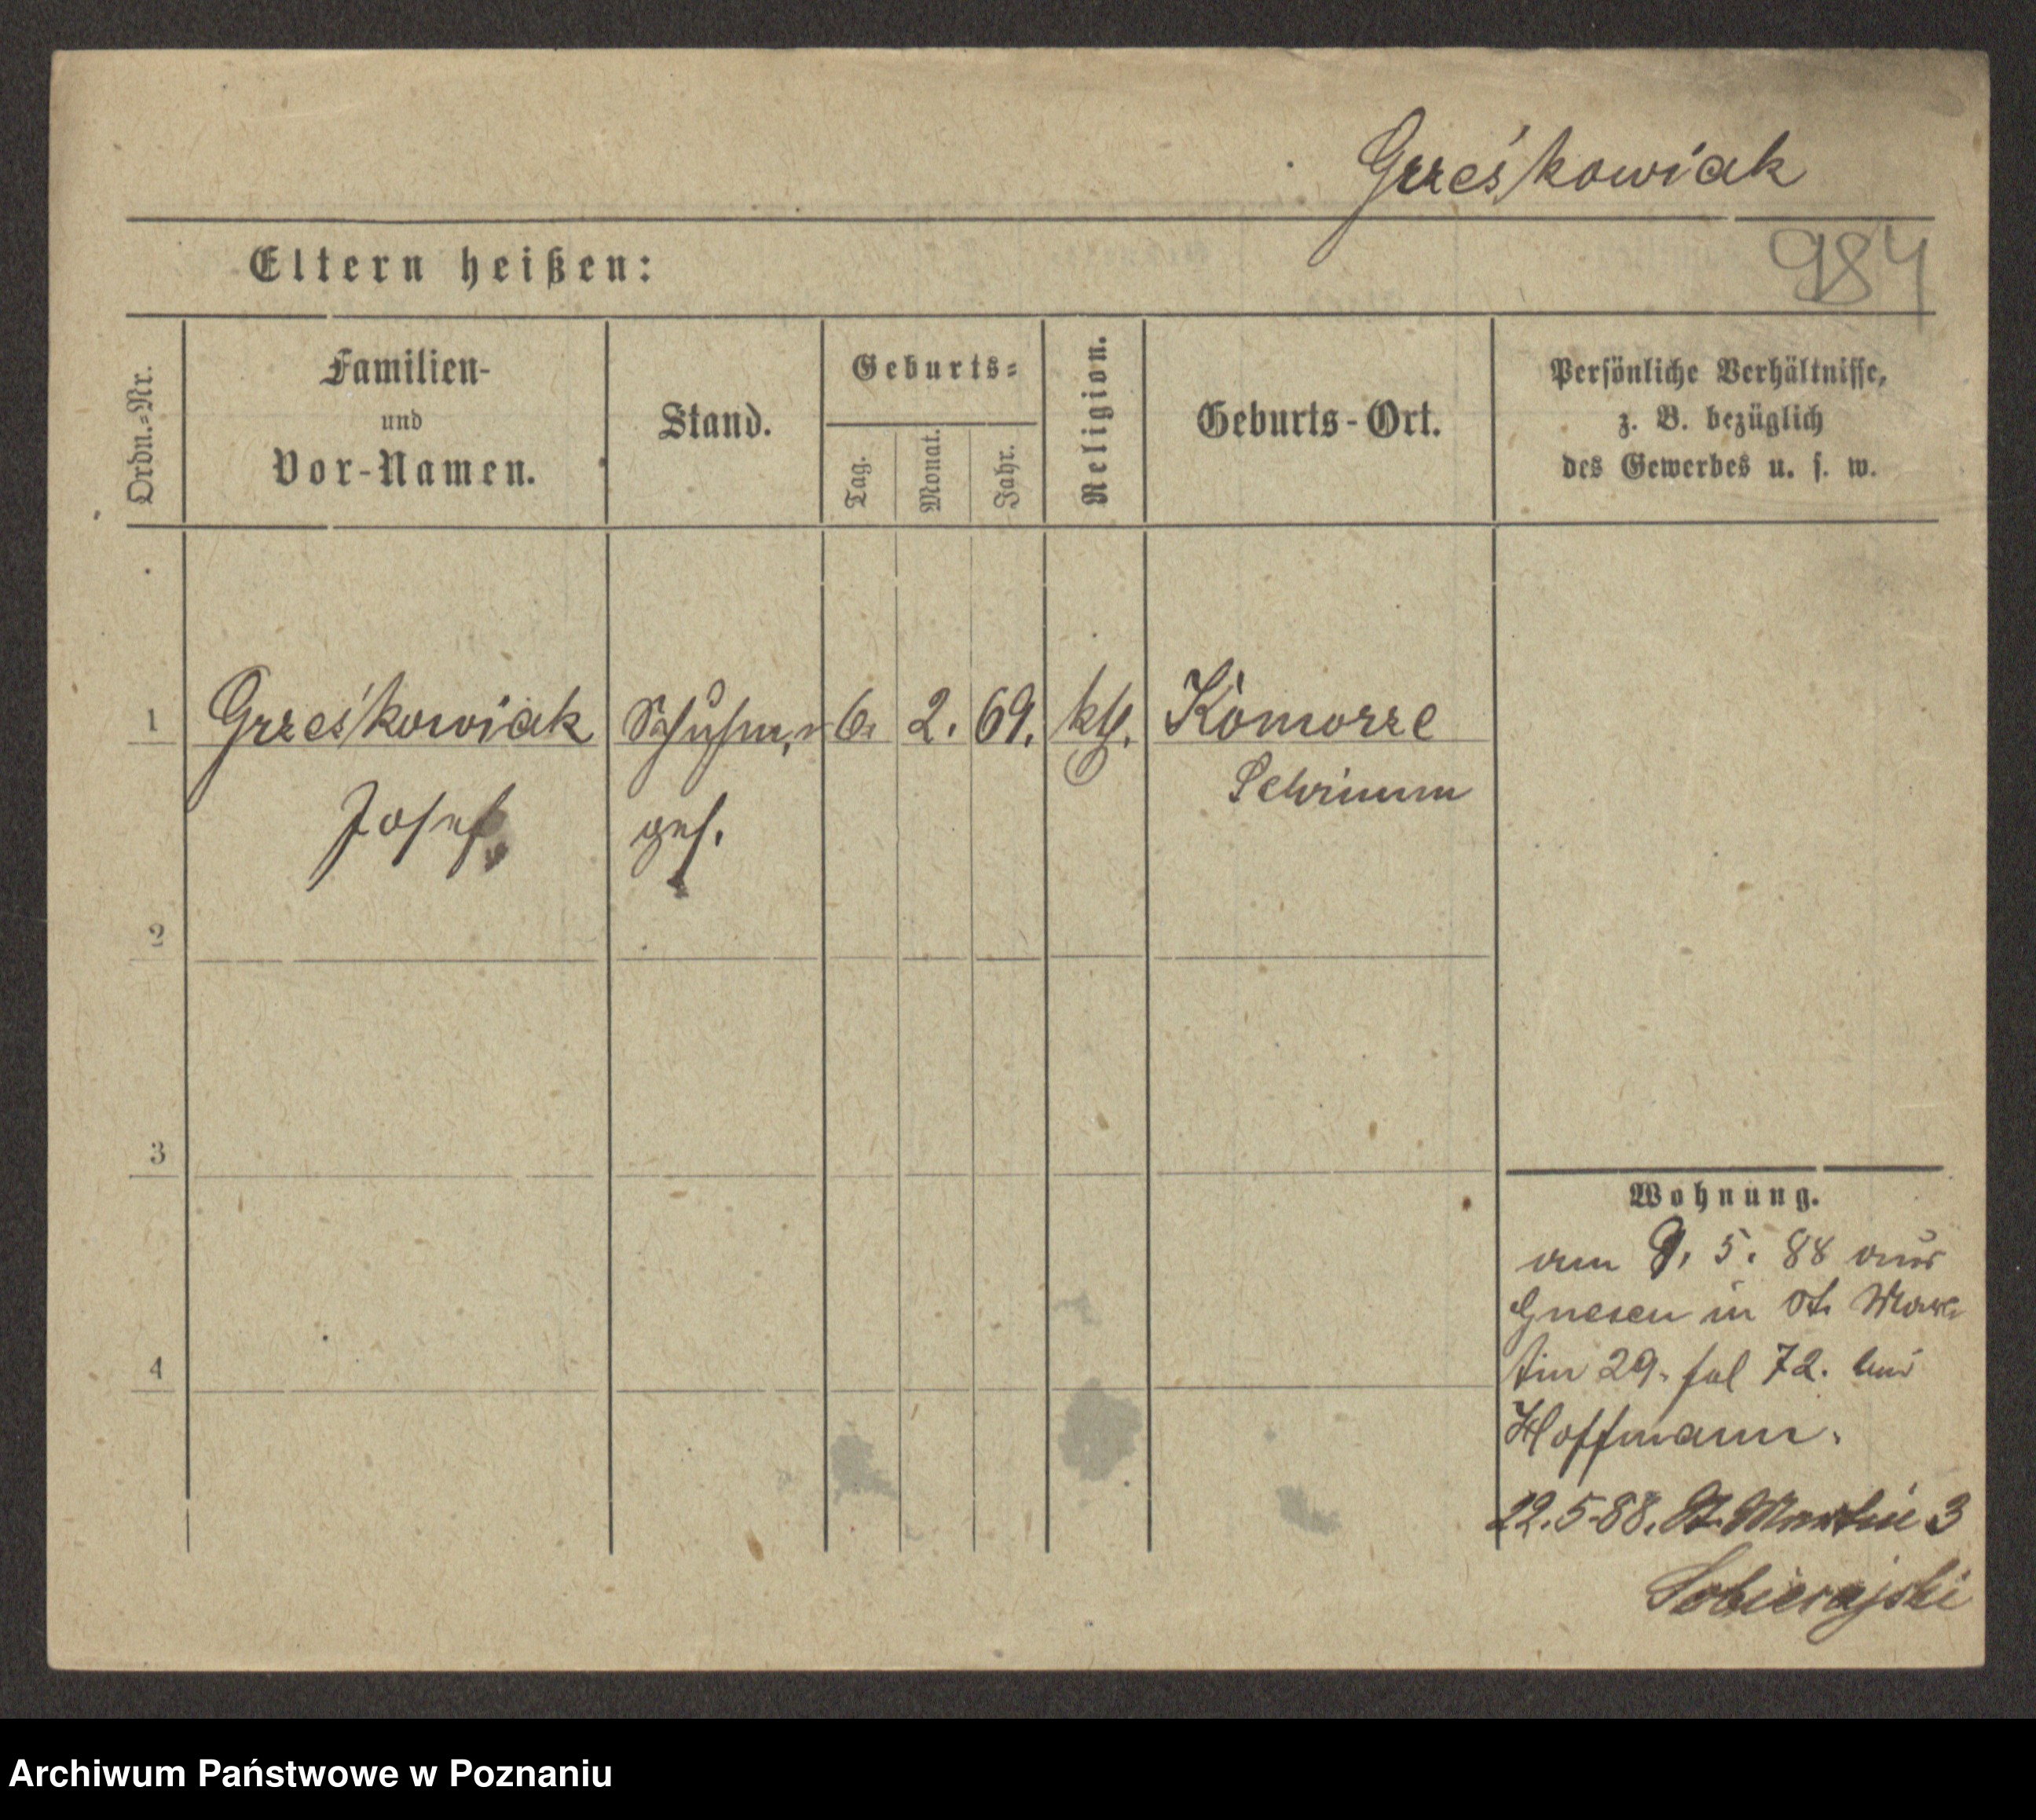 Grześkowiak
984
Eltern heißen:
Ordn.-Nr.
Familien-
und
Vor-Namen.
Stand.
Geburts-
Tag.
Monat.
Jahr.
Religion.
Geburts-Ort.
Persönliche Verhältnisse,
z. B. bezüglich
des Gewerbes u. s. w.
1 Grześkowiak 6. 2. 69. kth. Komorze
Josef ges. Schrimm
2
3
4
Wohnung.
am 9. 5. 88 aus
Gnesen in St. Mar-
tin 29. fol 72. bei
Hoffmann.
22.5.88. St. Martin 3
Sobierajski
Archiwum Państwowe w Poznaniu